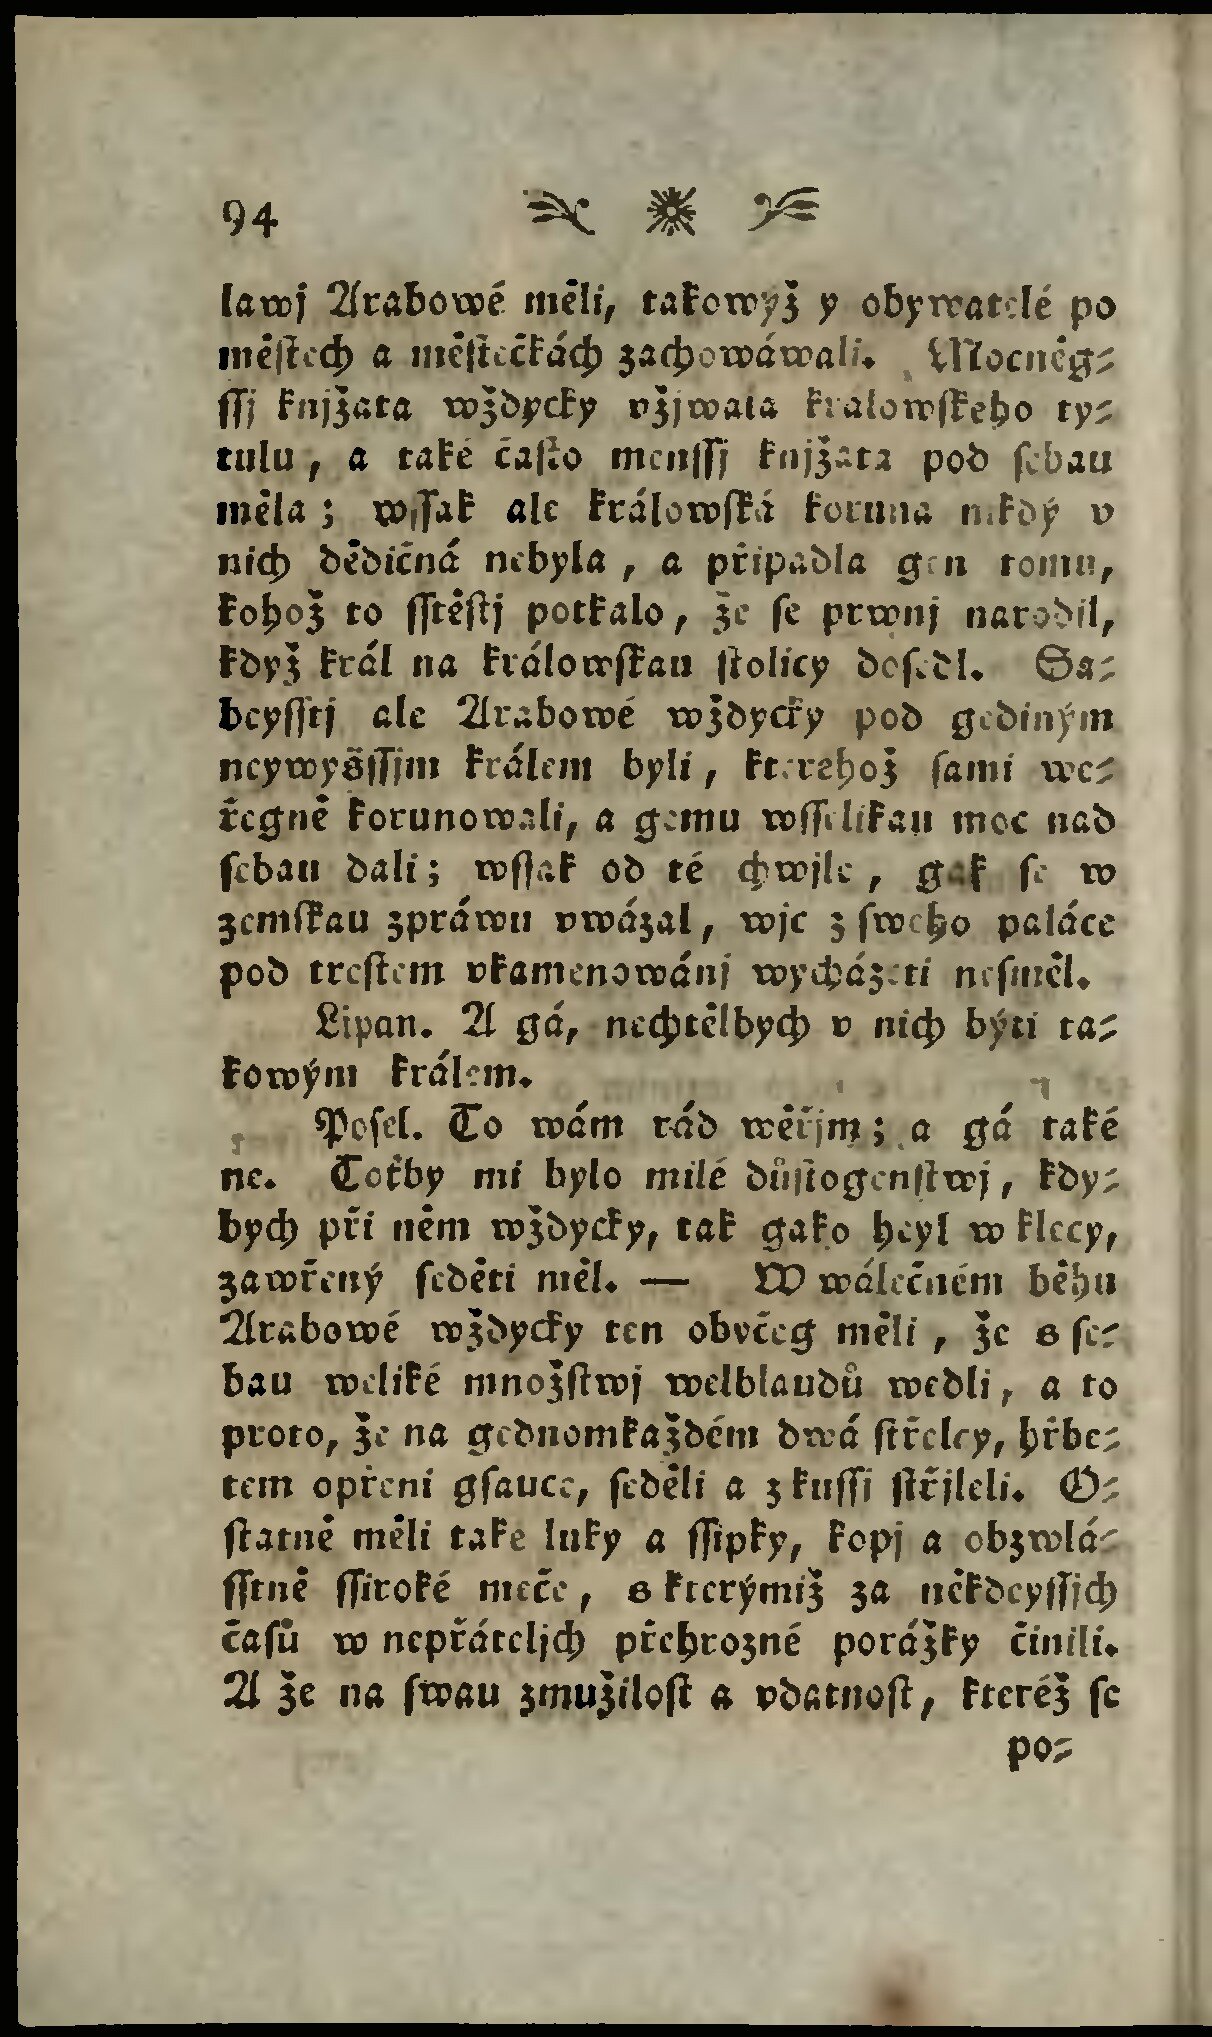 94
lawj Arabowé měli, takowýž y obywatelé po
městech a městečkách zachowáwali. Mocněg⸗
ſſj knjžata wždycky vžjwala kralowſkeho ty⸗
tulu, a také čaſto menſſj knjžata pod ſebau
měla; wſſak ale králowſká koruna nikdý v
nich dědičná nebyla, a připadla gen tomu,
kohož to ſſtěſtj potkalo, že ſe prwnj narodil,
když král na králowſkau ſtolicy doſedl. Sa⸗
beyſſtj ale Arabowé wždycky pod gediným
neywyšſſjm králem byli, kterehož ſami we⸗
řegně korunowali, a gemu wſſelikau moc nad
ſebau dali; wſſak od té chwjle, gak ſe w
zemſkau zpráwu vwázal, wjc z ſweho paláce
pod treſtem vkamenowánj wycházeti neſměl.
Lipan. A gá, nechtělbych v nich býti ta⸗
kowým králem.
Poſel. To wám rád wěřjm; a gá také
ne. Toťby mi bylo milé důſtogenſtwj, kdy⸗
bych při něm wždycky, tak gako heyl w klecy,
zawřený ſeděti měl. — W wálečném běhu
Arabowé wždycky ten obvčeg měli, že s ſe⸗
bau weliké množſtwj welblaudů wedli, a to
proto, že na gednomkaždém dwá ſtřelcy, hřbe⸗
tem opřeni gſauce, ſeděli a z kuſſi ſtřjleli. O⸗
ſtatně měli take luky a ſſipky, kopj a obzwlá⸗
ſſtně ſſiroké meče, s kterýmiž za někdeyſſjch
časů w nepřáteljch přehrozné porážky činili.
A že na ſwau zmužiloſt a vdatnoſt, kteréž ſe
po⸗